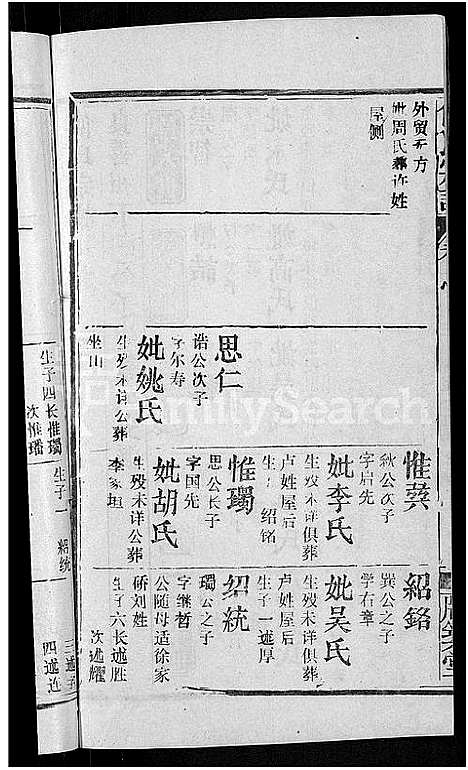 外贸无方
妣周氏葬许姓
屋侧
思仁
诰公次子
字尔寿
妣姚氏
生殁未详公葬
坐山
惟蓂
秋公次子
字启先
妣李氏
生殁未详俱葬
卢姓屋后
生子 绍铭
惟瓋
思公长子
字国先
妣胡氏
生殁未详公葬
李家垣
紹銘
公之子
学右章
妣吴氏
生殁未详俱葬
卢姓屋后
生子一述厚
绍統
公之子
字继哲
公随母适徐家
硚刘姓
生子六长述胜
次述耀
三述子
四述连
生子四长惟
次惟璠
生子一 绍统
FamilySearch